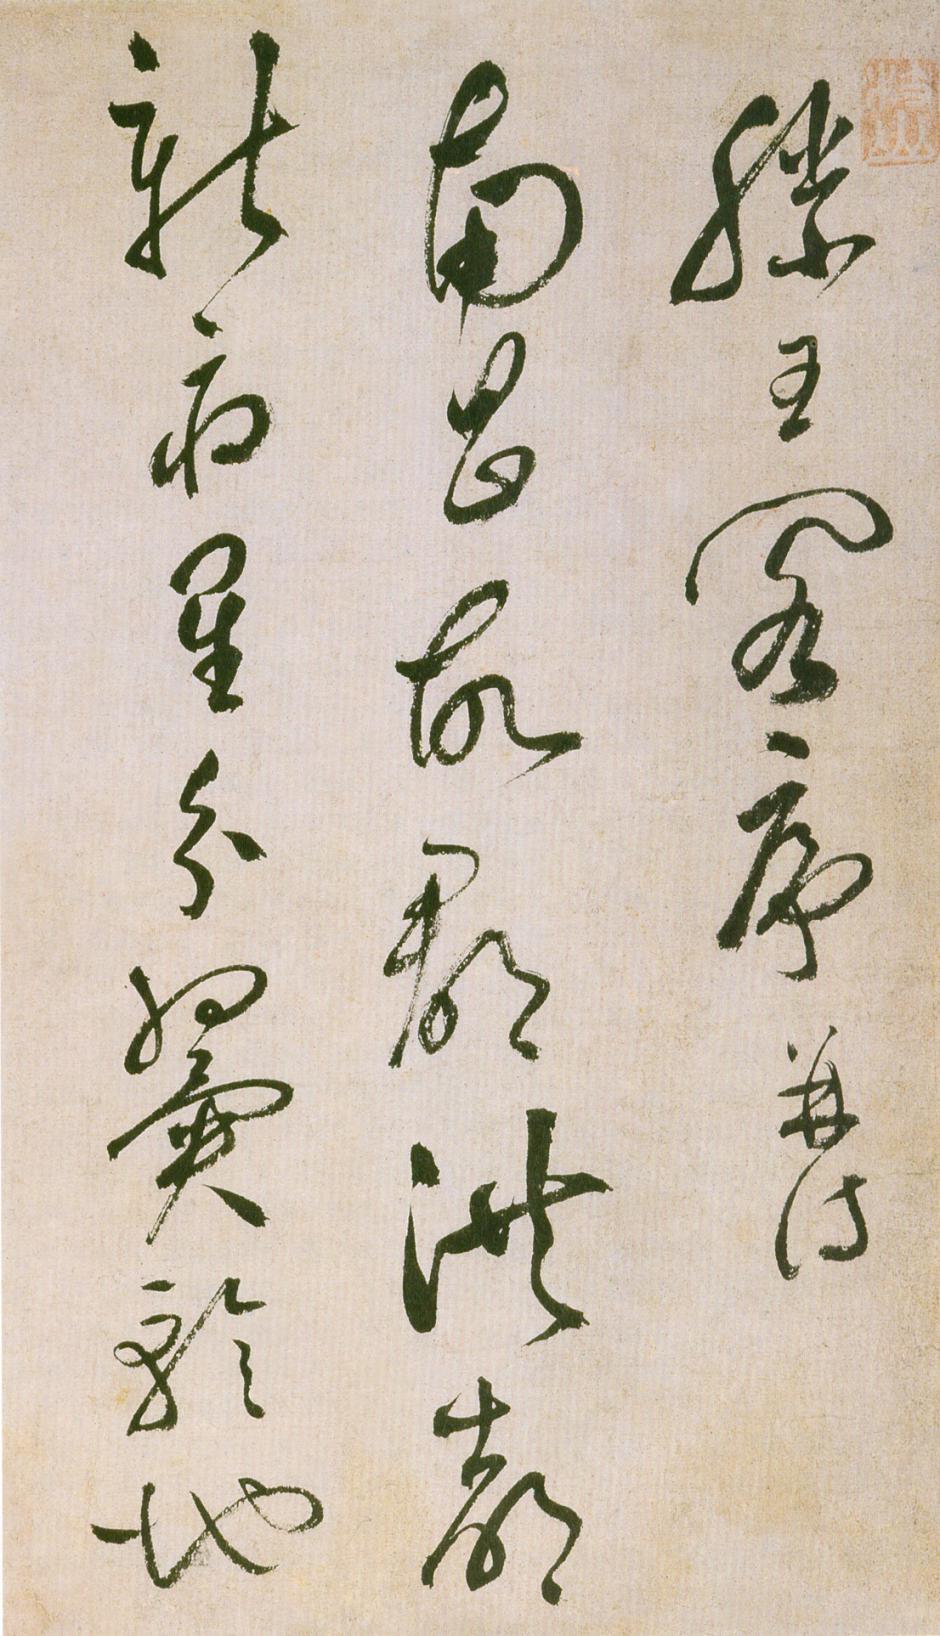 滕王閣序并詩
南昌故郡洪都
新府星分翼軫地